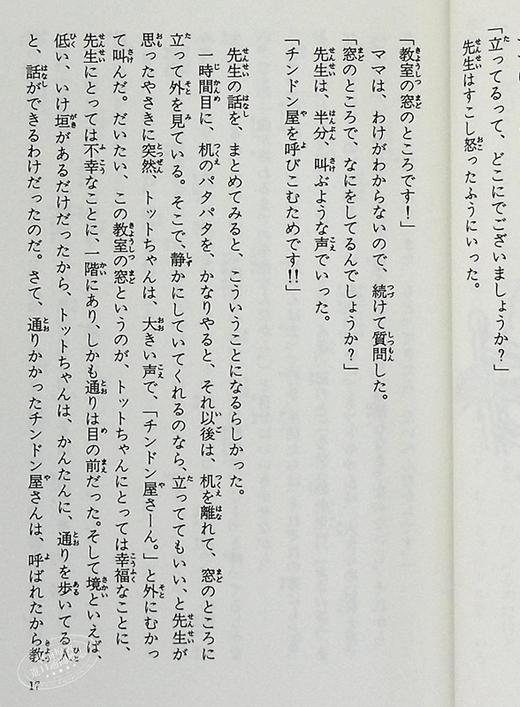 「立ってるって、どこにでございましょうか？」
先生はすこし怒ったふうにいった。
「教室の窓のところです！」
ママは、わけがわからないので、続けて質問した。
「窓のところで、なにをしてるんでしょうか？」
先生は、半分、叫ぶような声でいった。
「チンドン屋を呼びこむためです!!」
先生の話を、まとめてみると、こういうことになるらしかった。
一時間目に、机のパタパタを、かなりやると、それ以後は、机を離れて、窓のところに
立って外を見ている。そこで、静かにしていてくれるのなら、立っててもいい、と先生が
思ったやさきに突然、トットちゃんは、大きい声で、「チンドン屋さーん。」と外にむかっ
て叫んだ。だいたい、この教室の窓というのが、トットちゃんにとっては幸福なことに、
先生にとっては不幸なことに、一階にあり、しかも通りは目の前だった。そして境といえば、
低い、いけ垣があるだけだったから、トットちゃんは、かんたんに、通りを歩いてる人
と、話ができるわけだったのだ。さて、通りかかったチンドン屋さんは、呼ばれたから教
17